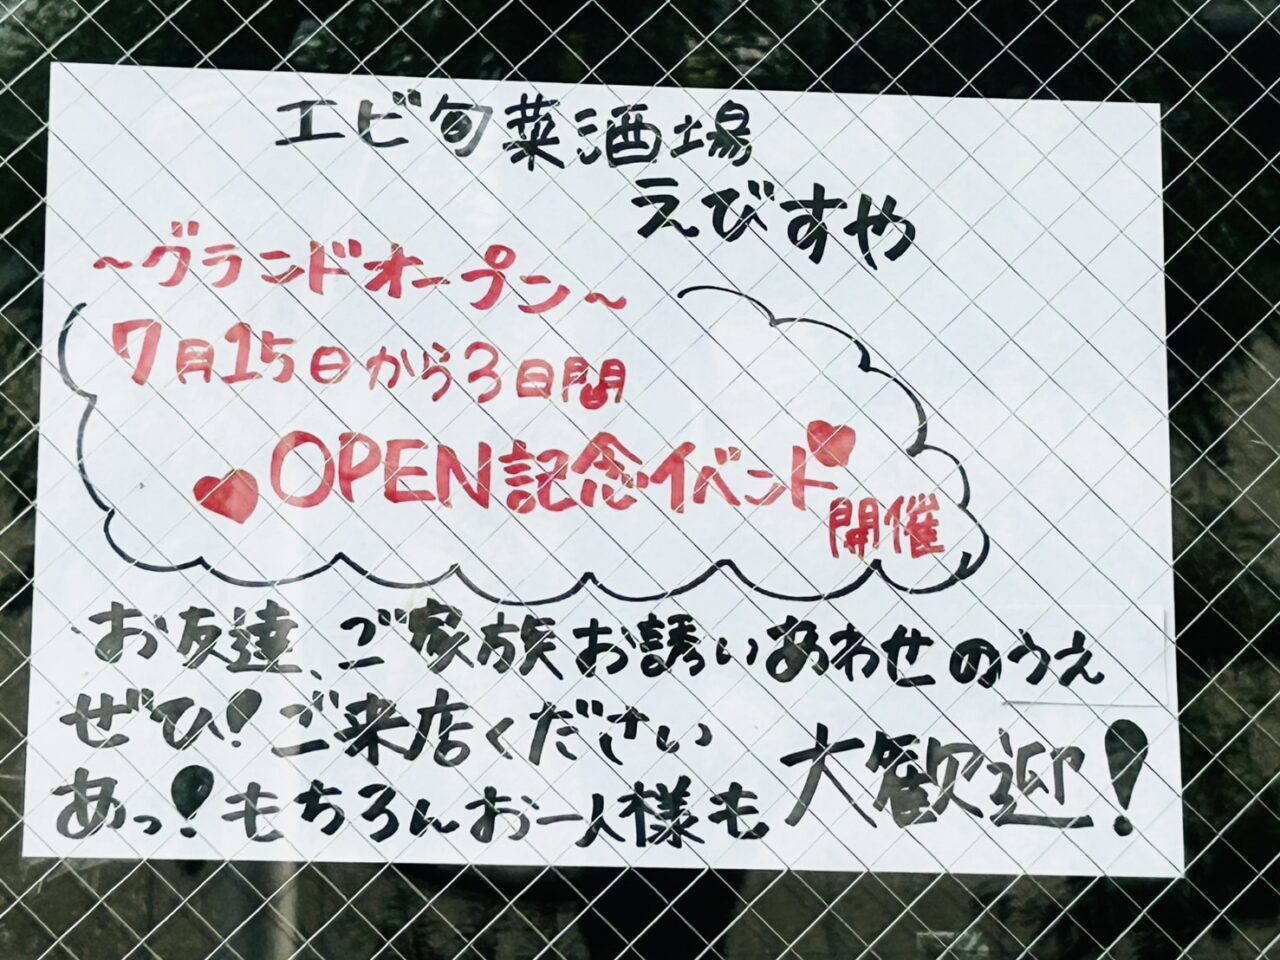 エビ旬菜酒場
えびすや
～グランドオープン～
7月15日から3日間
OPEN記念イベント
開催
お友達、ご家族お誘いあわせのうえ
ぜひ!ご来店ください
あっ!もちろんお一人様も
大歓迎!